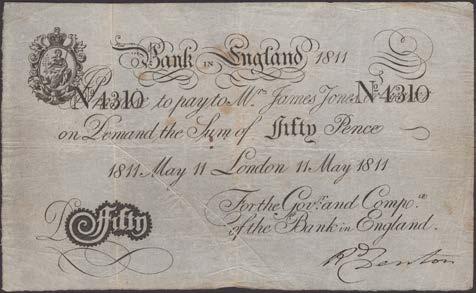 Bank IN England 1811
I Promise to pay to Mr. James Jones
No 4310 No 4310
on Demand the Sum of fifty Pence
1811 May 11 London 11 May 1811
For the Govr. and Compa.
of the Bank in England.
D Fifty
R Denton